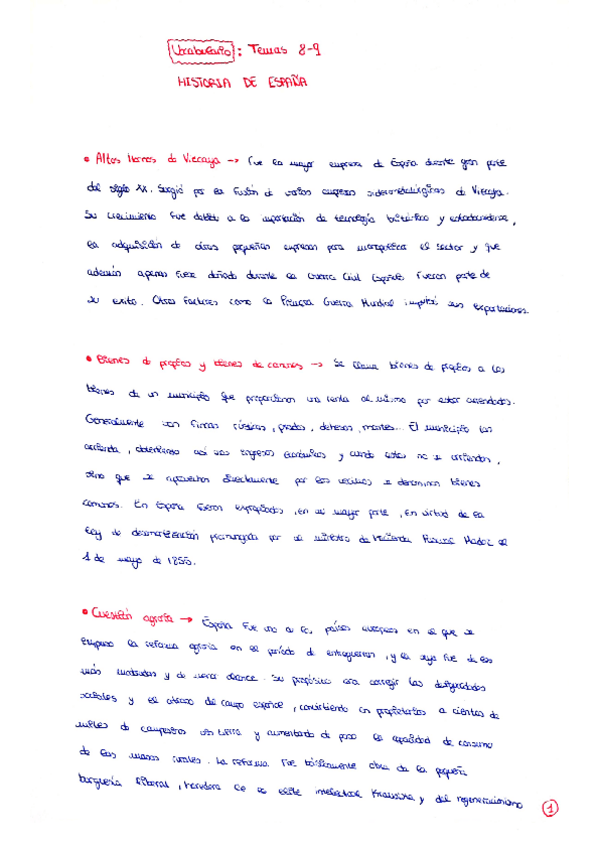 Vocabulario: Temas 8-9
HISTORIA DE ESPAÑA
• Altos Hornos de Vizcaya → Fue la mayor empresa de España durante gran parte
del siglo XX. Surgió por la fusión de varias empresas siderometalúrgicas de Vizcaya.
Su crecimiento fue debido a la importación de tecnología británica y estadounidense,
la adquisición de otras pequeñas empresas para monopolizar el sector y que
además apenas fuese dañado durante la Guerra Civil Española fueron parte de
su éxito. Otros factores como la Primera Guerra Mundial impulsó sus exportaciones.
• Bienes de propios y bienes de comunes → Se llama bienes de propios a los
bienes de un municipio que proporcionan una renta al mismo por estar arrendados.
Generalmente son fincas rústicas, prados, dehesas, montes... El municipio las
arrienda, obteniendo así sus ingresos económicos y cuando estas no se arriendan,
sino que se aprovechan directamente por los vecinos se denominan bienes
comunes. En España fueron expropiados, en su mayor parte, en virtud de la
Ley de desamortización promungada por el ministro de Hacienda Pascual Madoz el
1 de mayo de 1855.
• Cuestión agraria → España fue uno de los países europeos en el que se
empuso la reforma agraria en el período de entreguerras, y la suya fue de las
más moderadas y de menor alcance. Su propósito era corregir las desigualdades
sociales y el atraso del campo español, convirtiendo en propietarios a cientos de
miles de campesinos sin tierra y aumentando de paso la capacidad de consumo
de las masas rurales. La reforma fue básicamente obra de la pequeña
burguesía liberal, heredera de la élite intelectual Krausista y del regeneracionismo
1